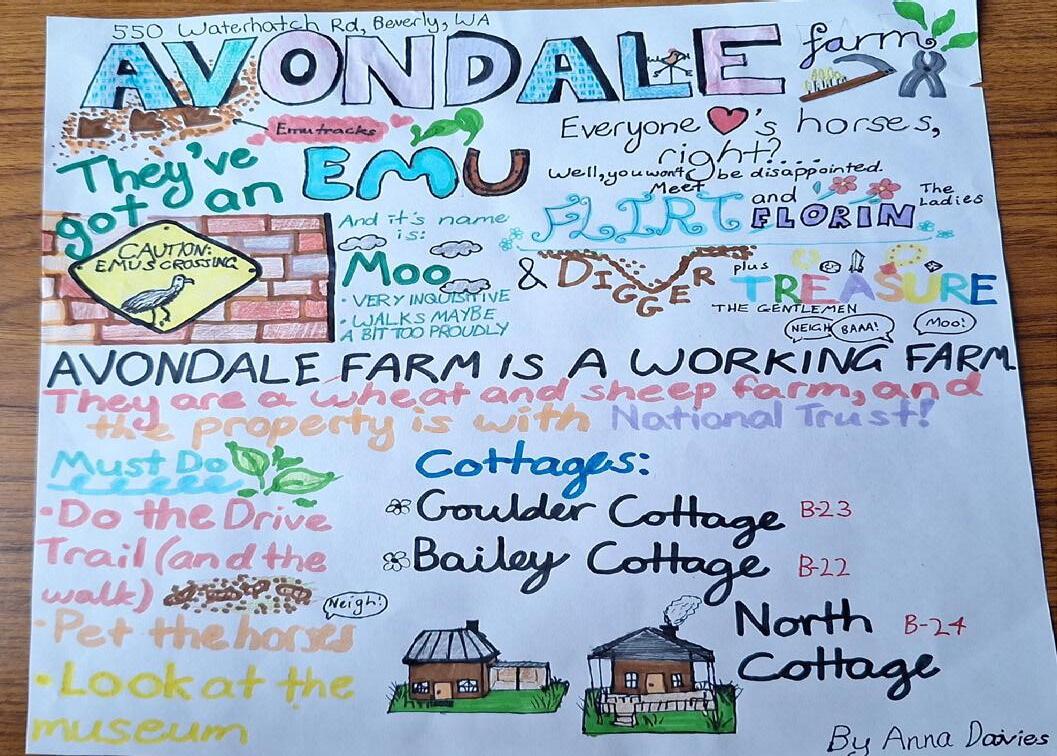 550 Waterhatch Rd, Beverly, WA
AVONDALE farm
Emu tracks
Everyone ❤'s horses,
right?....
They've
got an EMU
Well, you won't be disappointed.
Meet
FLIRT and FLORIN The
Ladies
CAUTION:
EMUS CROSSING
And it's name
is:
Moo
• VERY INQUISITIVE
• WALKS MAYBE
A BIT TOO PROUDLY
& DIGGER plus TREASURE
THE GENTLEMEN
NEIGH
BAAA!
Moo!
AVONDALE FARM IS A WORKING FARM
They are a wheat and sheep farm, and
the property is with National Trust!
Must Do
• Do the Drive
Trail (and the
walk)
Neigh!
• Pet the horses
• Look at the
museum
Cottages:
Goulder Cottage B-23
Bailey Cottage B-22
North B-24
Cottage
By Anna Davies